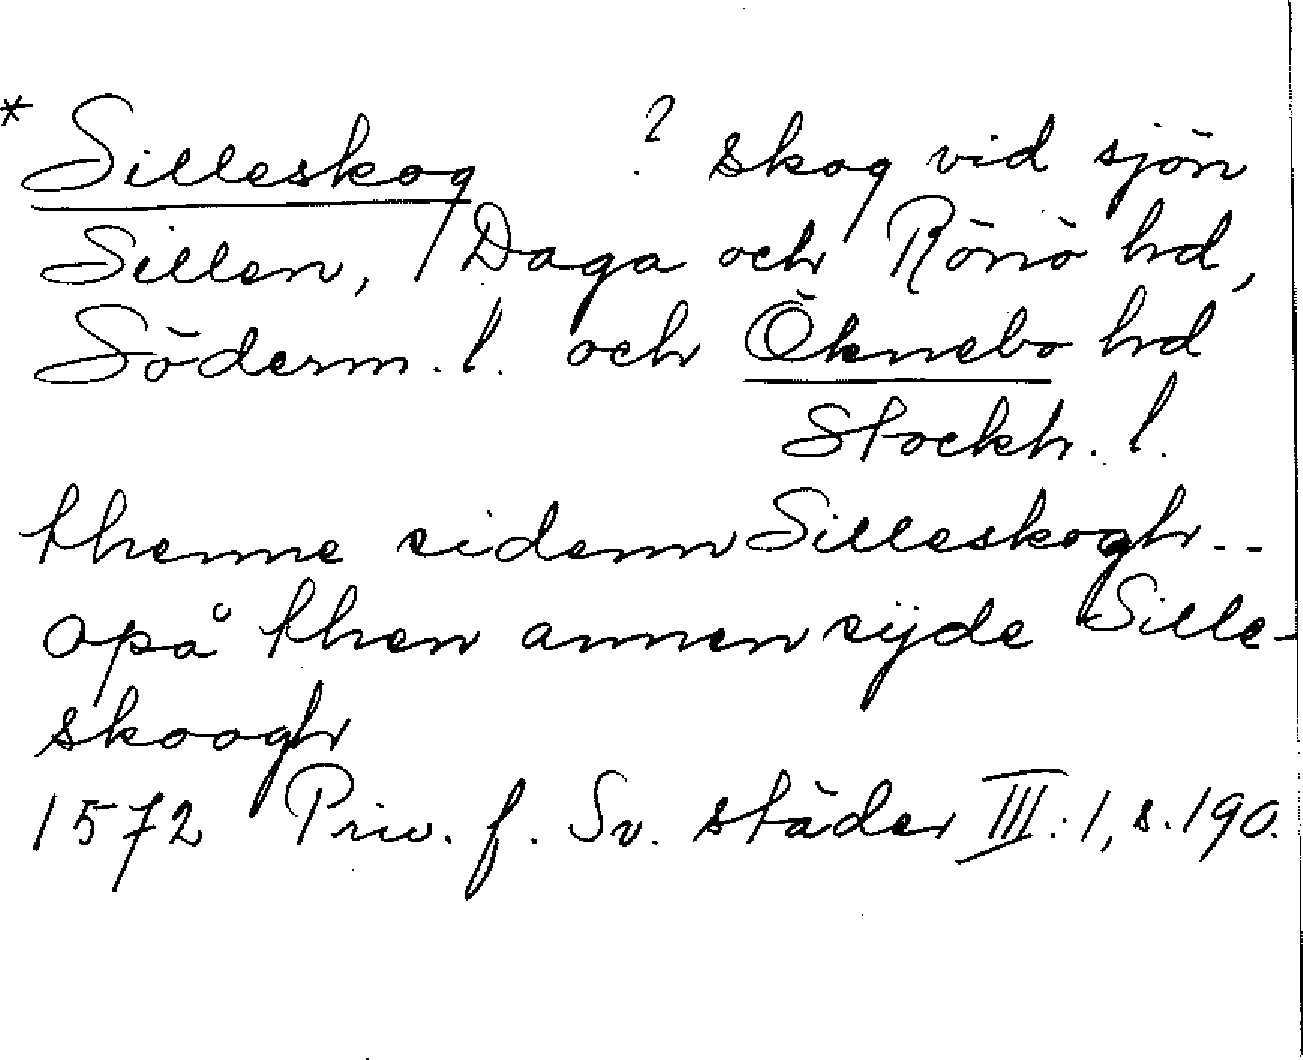 * Silleskog ? skog vid sjön
Sillen, Daga och Rönö hd,
Söderm. l. och Öknebo hd
Stockh. l.
thenne sidenn Silleskogh..
opå then annen sijde Sille-
skoogh
1572 Priv. f. Sv. städer III:1, s. 190.